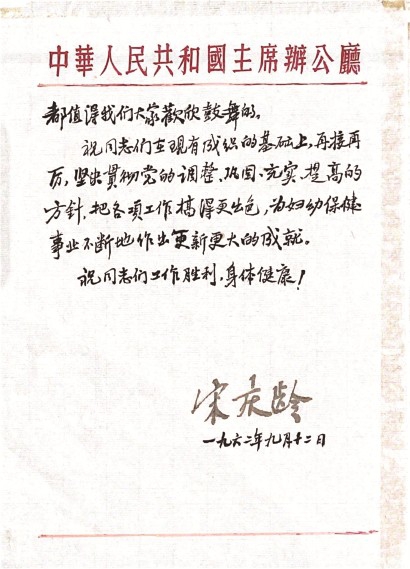 中華人民共和國主席辦公廳
都值得我们大家歡欣鼓舞的。
祝同志们在現有成织的基础上,再接再
厉,坚决貫彻党的调整、巩固、充实、提高的
方针,把各項工作搞得更出色,为妇幼保健
事业不断地作出更新更大的成就。
祝同志们工作胜利,身体健康!
宋庆龄
一九六二年九月十二日